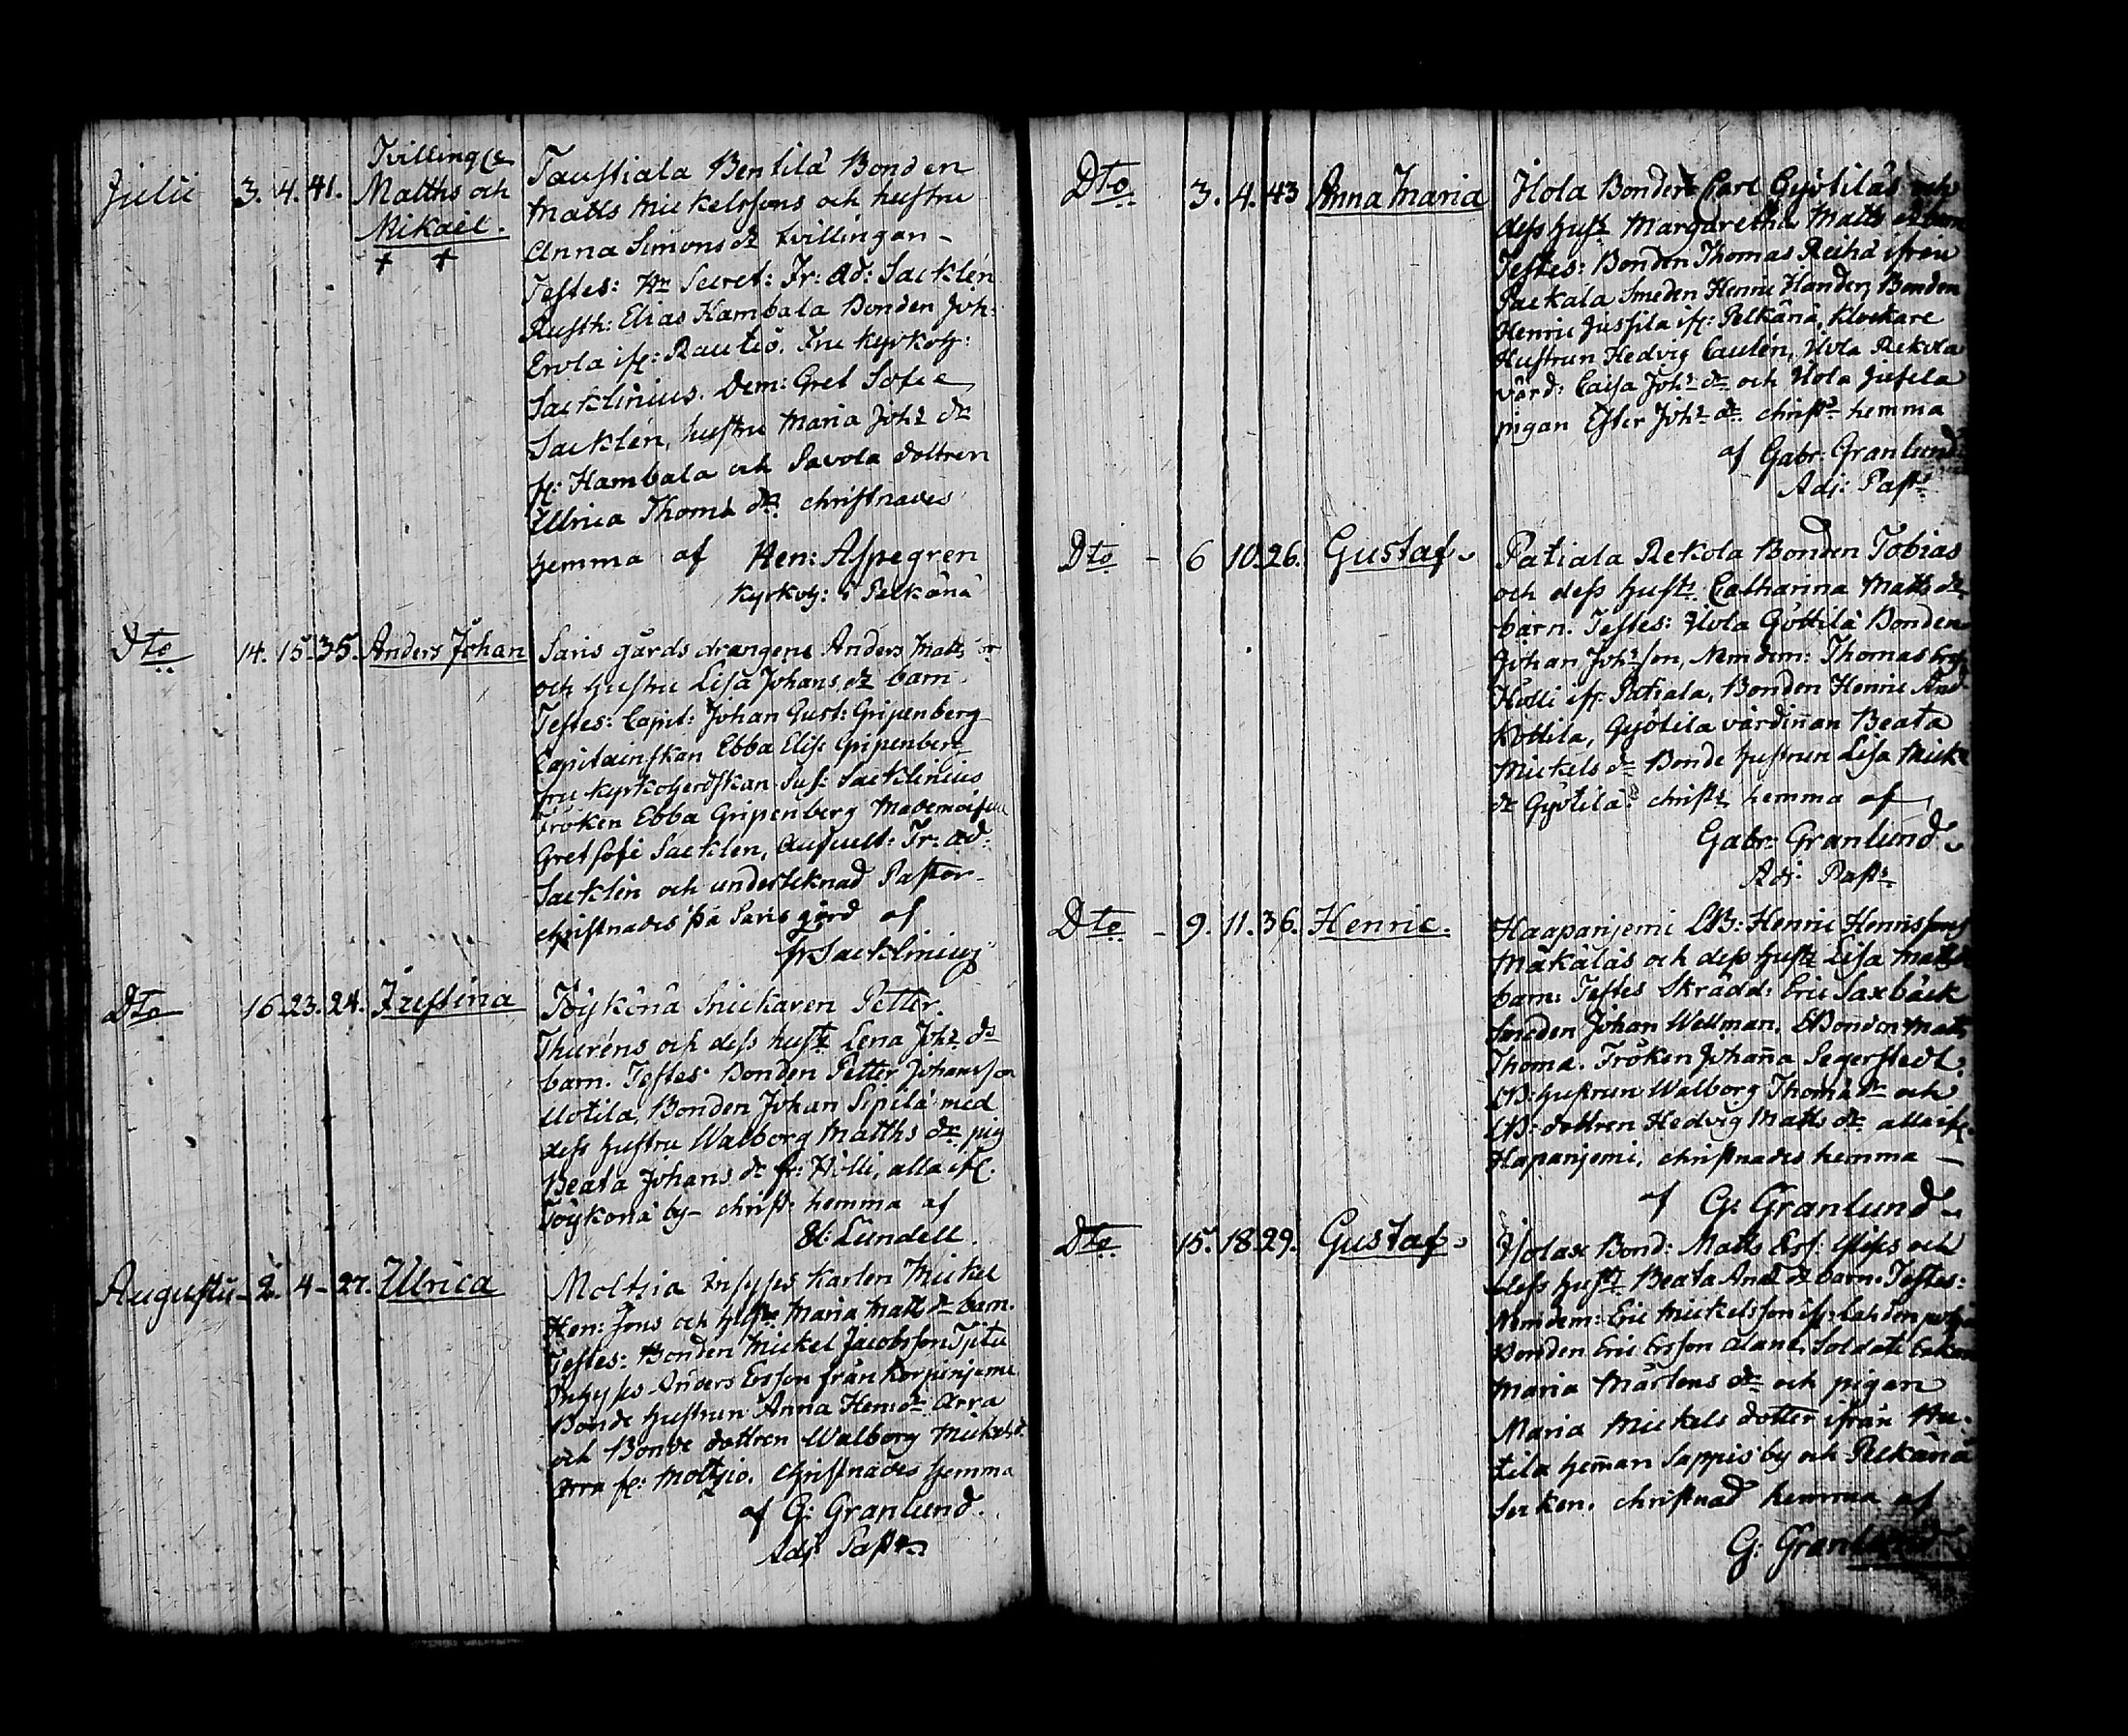 Tvillinge
Julii 3. 4. 41. Matths och
Mikaël.
+ +
Taustiala Bentilä Bonden
Matts Mickelssons och hustru
Anna Simons dr tvillingar –
Testes: Hr Secret: Fr: Ad: Sacklén
Rusth: Elias Kambala Bonden Joh:
Erola ifr: Rautio. Fru Kyrkoh:
Sacklinius. Dem: Gret Sofie
Sacklén, hustru Maria Joh: dr
fr: Kambala och Savola dottren
Ulrica Thoma dr. christnades
hemma af Hen: Aspegren
Kyrkoh: i Pelkänä
Dto 14. 15. 35. Anders Johan
Saris gårds drängens Anders Matts
och hustru Lisa Johans dr barn.
Testes: Capit: Johan Gust: Gripenberg
Capitainskan Ebba Elis: Gripenberg
fru Kyrkoherdskan Sus: Sacklinius
Fröken Ebba Gripenberg Mademoiselle
Gretsofi Sacklén, Auscult: Fr: Ad:
Sacklén och underteknad Pastor.
christnades på Saris gård af
Fr Sacklinius
Dto 16. 23. 24. Justina
Töykönä Snickaren Petter
Thuréns och dess hustr Lena Joh: dr
barn. Testes: Bonden Petter Johansson
Uotila, Bonden Johan Sipilä med
dess hustru Walborg Matths dr pig
Beata Johans dr fr: Hilli, alla ifr.
Töykönä by – christ: hemma af
El: Lundell.
Augusti – 2. 4 – 27. Ulrica
Moltsia Inhyses Karlen Mickel
Hen: Jons och hustr Maria Matts dr barn.
Testes: Bonden Mickel Jacobsson
Inhyses Anders Ersson från Korpinjemi
Bonde hustrun Anna Hens dr Arra
och Bonde dottren Walborg Mickels d.
Arra fr: Moltzio. christnades hemma
af G: Granlund.
Adj: Past:
Dto 3. 4. 43 Anna Maria
Hola Bonden Carl Gyötiläs och
dess hustr Margaretha Matts dr barn
Testes: Bonden Thomas ifrån
Packala Smeden Henric Handen, Bonden
Henric Jussila ifr: Pelkänä, Klockare
Hustrun Hedvig Caulén, Hola Rekola
värd: Caisa Joh: dr och Hola Jussila
pigan Ester Joh: dr. christ: hemma
af Gabr: Granlund
Adj: Past:
Dto – 6 10. 26. Gustaf
Patiala Rekola Bonden Tobias
och dess hustr. Catharina Matts dr
barn. Testes: Hola Bonden
Johan Joh: son, Nemdem: Thomas
ifr. Patiala, Bonden Henric And
Kottila, Gyötilä värdiñan Beata
Mickels dr Bonde hustrun Lisa Mick
dr Gyötilä. christ: hemma af
Gabr: Granlund
Adj: Past:
Dto – 9. 11. 36. Henric.
Haapanjemi LB: Henric Henrissons
Mäkäläs och dess hustr Lisa Matts
barn: Testes Skrädd: Eric Saxbäck
Smeden Johan Wellman. LBonden Matts
Thoma. Fröken Johaña Segerstedt.
LB: hustrun Walborg Thoma dr och
LB: dottren Hedvig Matts dr alla ifr.
Hapanjemi. christnades hemma –
af G: Granlund
Dto 15. 18. 29. Gustaf
Bond: Matts och
dess hustr Beata And: dr barn. Testes:
Nemdem: Eric Mickelsson ifr:
Bonden Eric Ersson Alane, Soldats
Maria Mårtens dr och pigan
Maria Mickels dotter ifrån
tila heman Sappis by och Pelkänä
Socken. christnad hemma af
G: Granlund